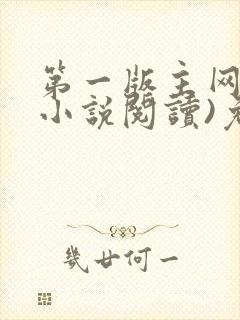 第一版主网
小説閱讀)免
幾廿何一